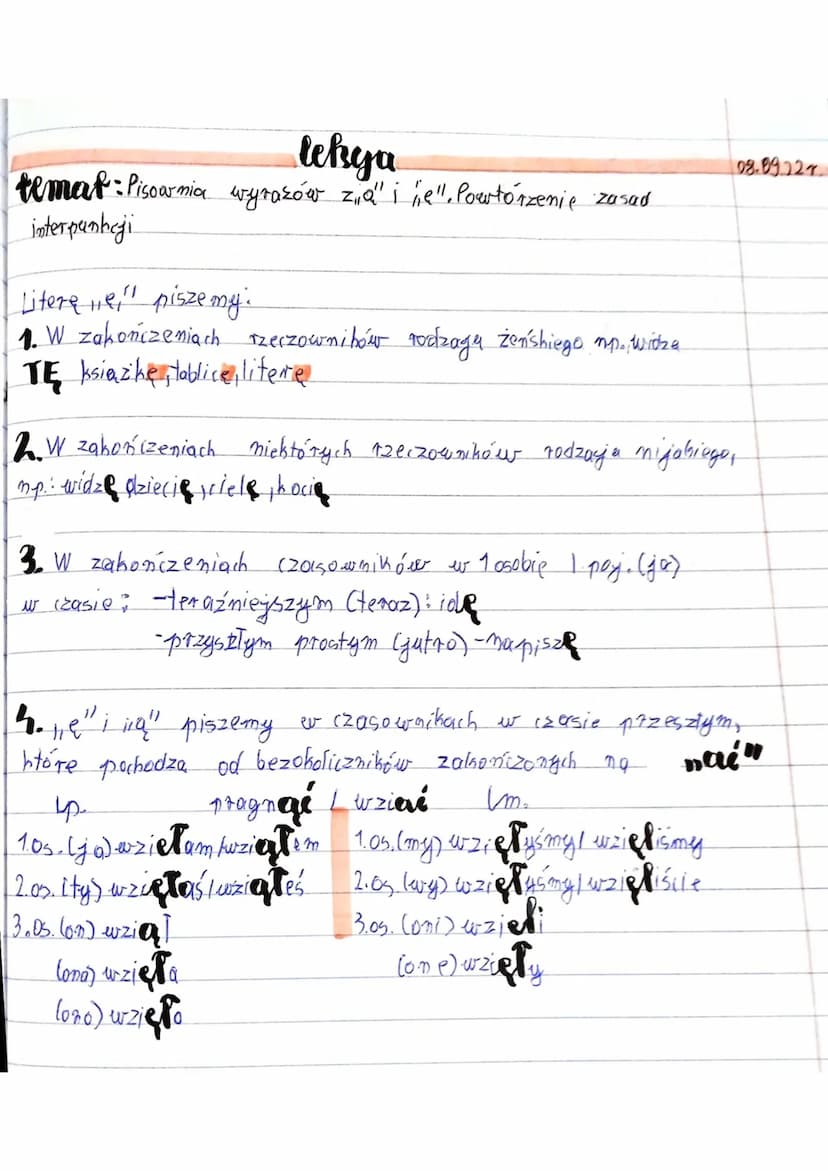 lekcja
08.09.22r.
temat: Pisownia wyrazów z „ą" i „ę". Powtórzenie zasad
interpunkcji
Literę „ę" piszemy:
1. W zakończeniach rzeczowników rodzaju żeńskiego np., widzę
TĘ książkę, tablicę, literę
2. W zakończeniach niektórych rzeczowników rodzaju nijakiego,
np.: widzę dziecię, cielę, kocię
3. W zakończeniach czasowników w 1 osobie l poj. (ja)
w czasie: -teraźniejszym (teraz): idę
-przyszłym prostym (jutro) - napiszę
4. „ę" i „ą" piszemy w czasownikach w czasie przeszłym,
które pochodzą od bezokoliczników zakończonych na „ąć"
Lp. pragnąć / wziąć Lm.
1.os. (ja) wzięłam/wziąłem 1.os. (my) wzięłyśmy/ wzięliśmy
2.os. (ty) wzięłaś/wziąłeś 2.os (wy) wzięłyśmy/ wzięliście
3.os. (on) wziął 3.os. (oni) wzięli
(ona) wzięła (one) wzięły
(ono) wzięło